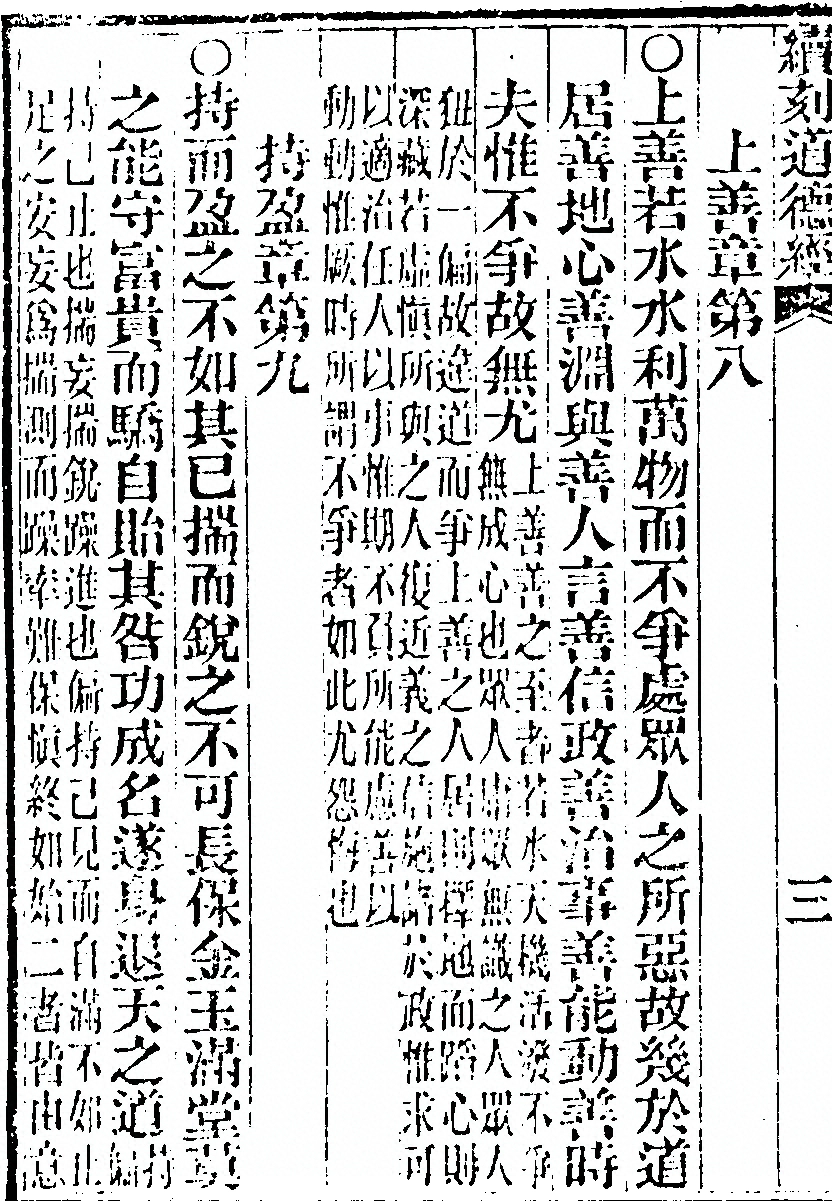 續刻道德經 三
上善章第八
○上善若水水利萬物而不爭處眾人之所惡故幾於道
居善地心善淵與善人言善信政善治事善能動善時
夫惟不爭故無尤上善善之至者若水天機活潑不爭
無成心也眾人庸眾無識之人眾人
狃於一偏故進道而爭上善之人居則擇地而蹈心則
深藏若虛愼所與之人復近義之信施諸於政惟求可
以適治任人以事惟期不負所能慮善以
動動惟厥時所謂不爭者如此尤怨悔也
持盈章第九
○持而盈之不如其已揣而銳之不可長保金玉滿堂莫
之能守富貴而驕自貽其咎功成名遂身退天之道持
偏
持已止也揣妄揣銳躁進也偏持己見而自滿不如止
足之安妄爲揣測而躁率難保愼終如始二者皆由意